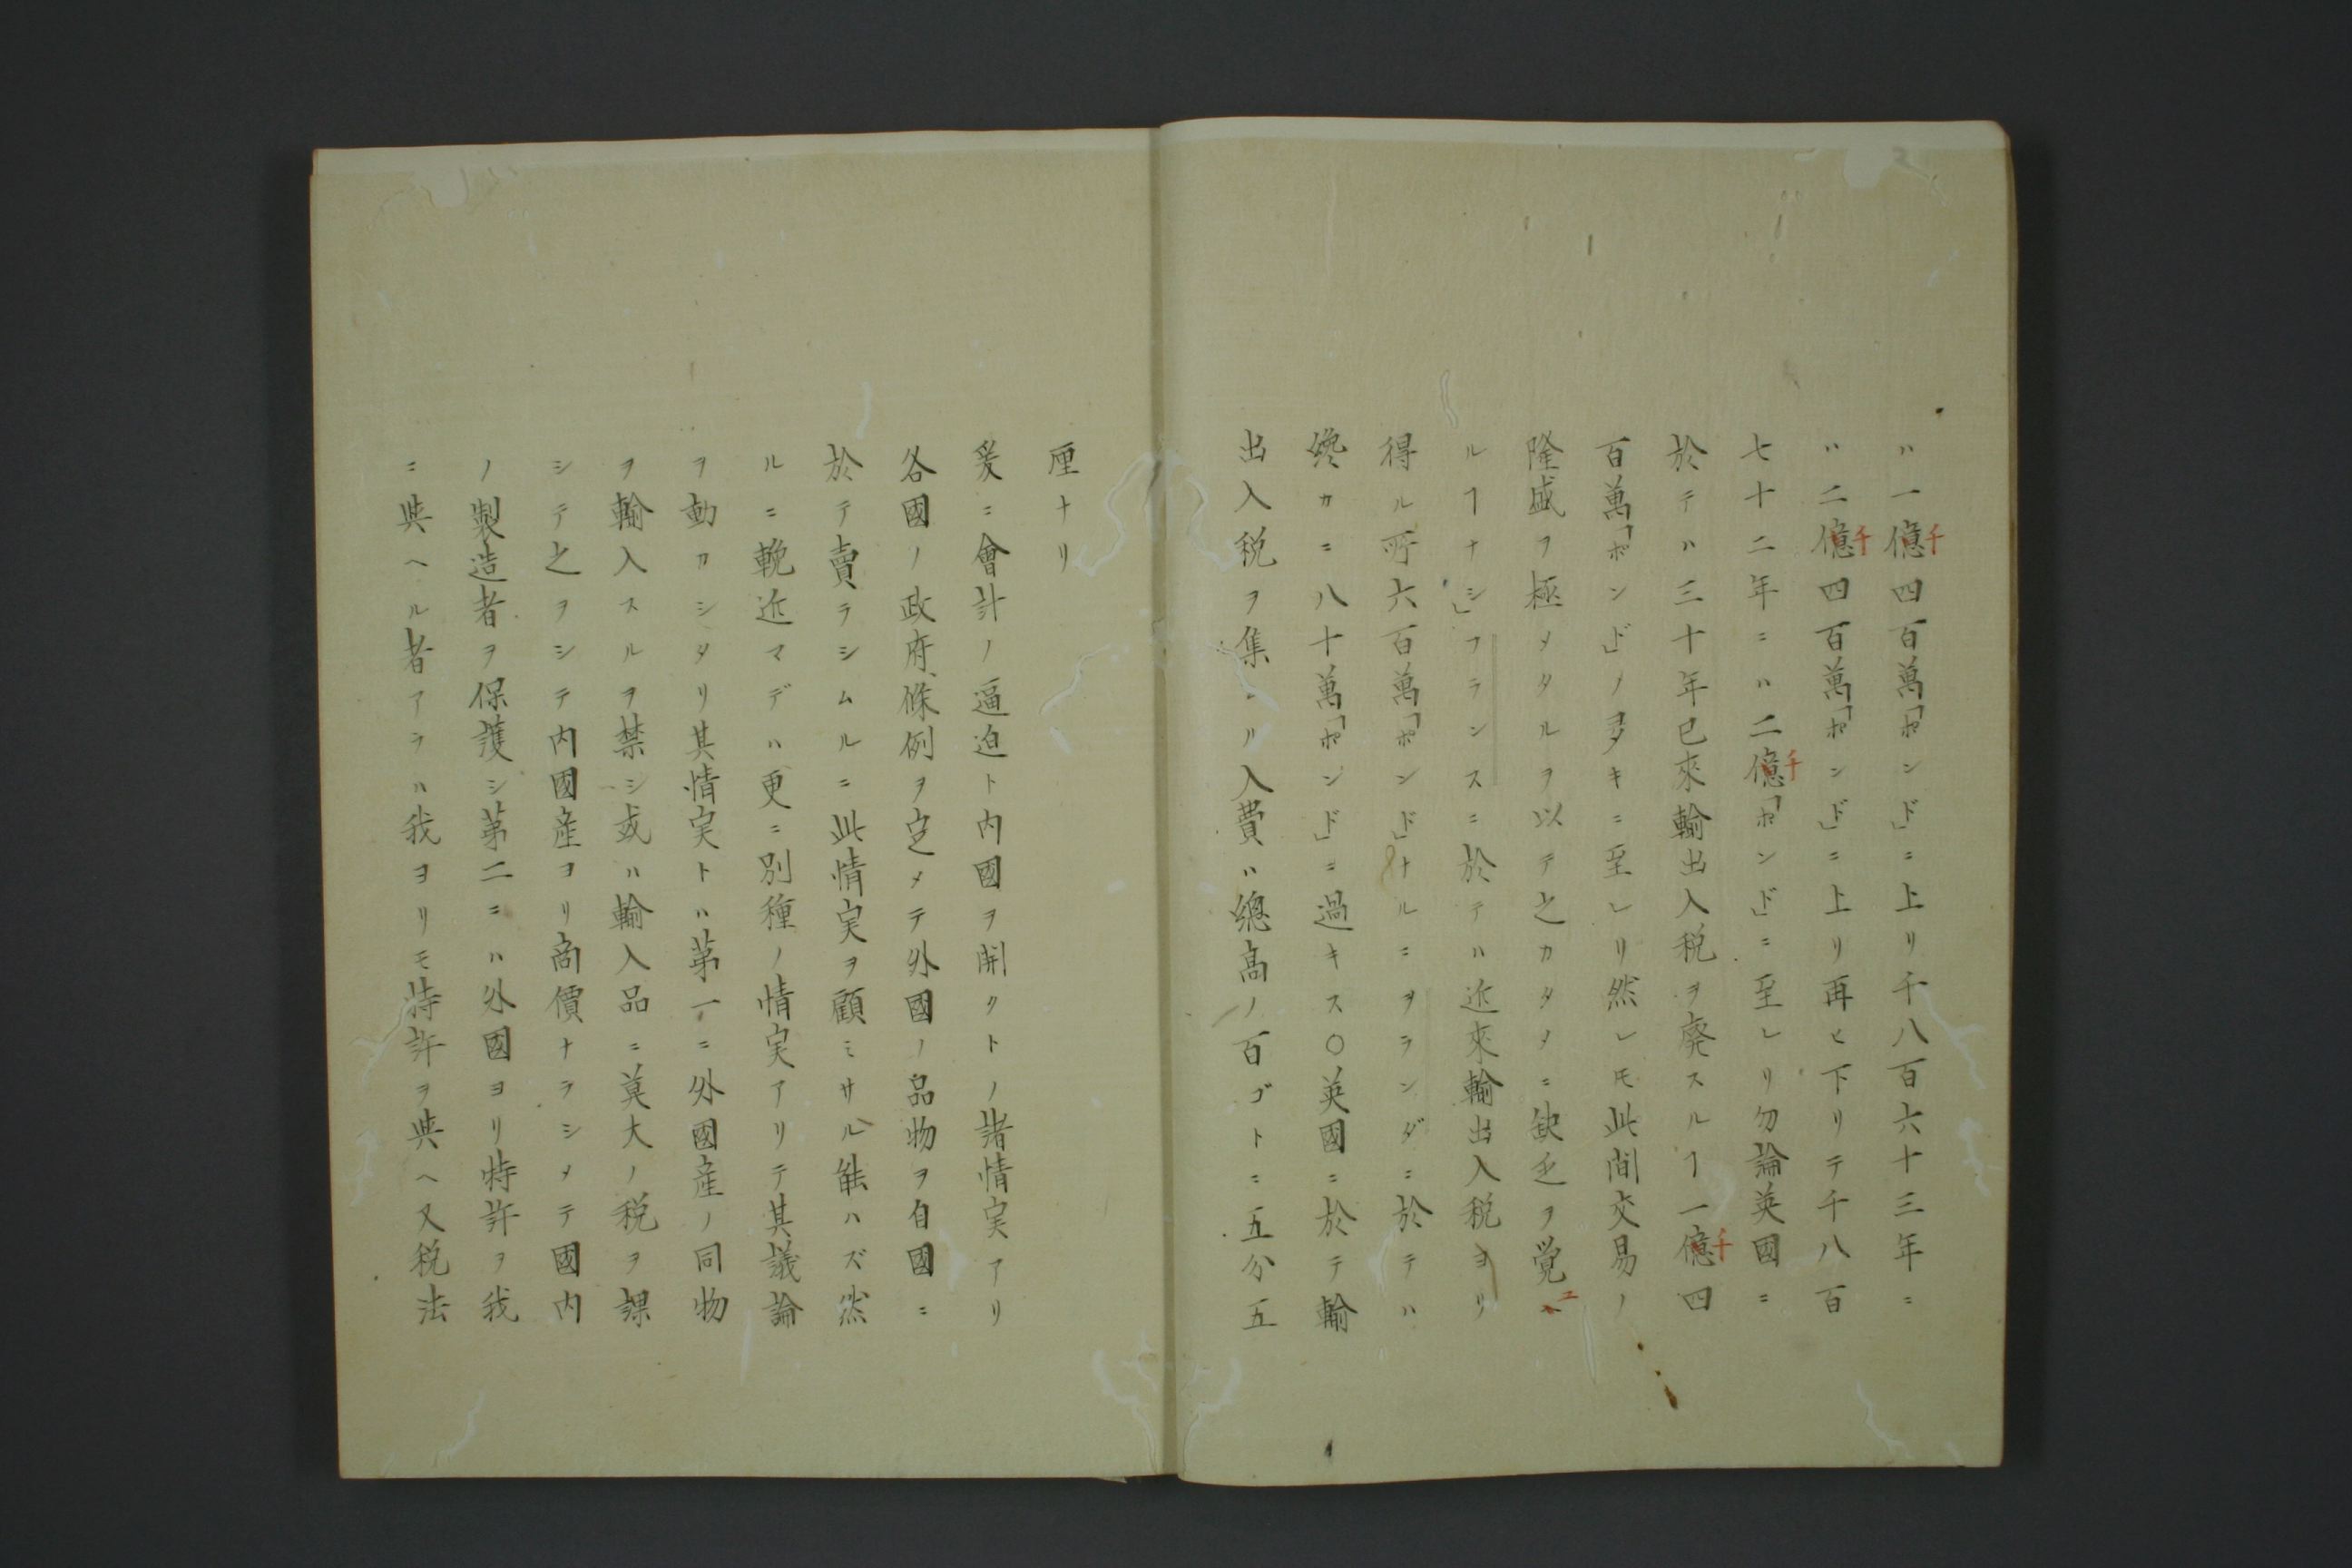 ハ一億四百萬「ポンド」ニ上リ千八百六十三年ニ
千
ハ二億四百萬「ポンド」ニ上リ再ヒ下リテ千八百
千
七十二年ニハ二億「ポンド」ニ至レリ勿論英國ニ
千
於テハ三十年已來輸出入税ヲ廃スルヿ一億四
千
百萬「ポンド」ノ多キニ至レリ然レ𪜈此間交易ノ
隆盛ヲ極メタルヲ以テ之カタメニ缺乏ヲ覚
エ
ルヿナシ」フランスニ於テハ近來輸出入税ヨリ
得ル所六百萬「ポンド」ナルニヲランダニ於テハ
纔カニ八十萬「ポンド」ニ過キス○英國ニ於テ輸
出入税ヲ集ムル入費ハ總高ノ百ゴトニ五分五
厘ナリ
爰ニ會計ノ逼迫ト内國ヲ開クトノ諸情実アリ
各國ノ政府、條例ヲ定メテ外國ノ品物ヲ自國ニ
於テ賣ラシムルニ此情実ヲ顧ミサル能ハズ然
ルニ輓近マデハ更ニ別種ノ情実アリテ其議論
ヲ動カシタリ其情実トハ苐一ニ外國産ノ同物
ヲ輸入スルヲ禁シ或ハ輸入品ニ莫大ノ税ヲ課
シテ之ヲシテ内國産ヨリ商價ナラシメテ國内
ノ製造者ヲ保護シ苐二ニハ外國ヨリ特許ヲ我
ニ與ヘル者アラハ我ヨリモ特許ヲ與ヘ又税法